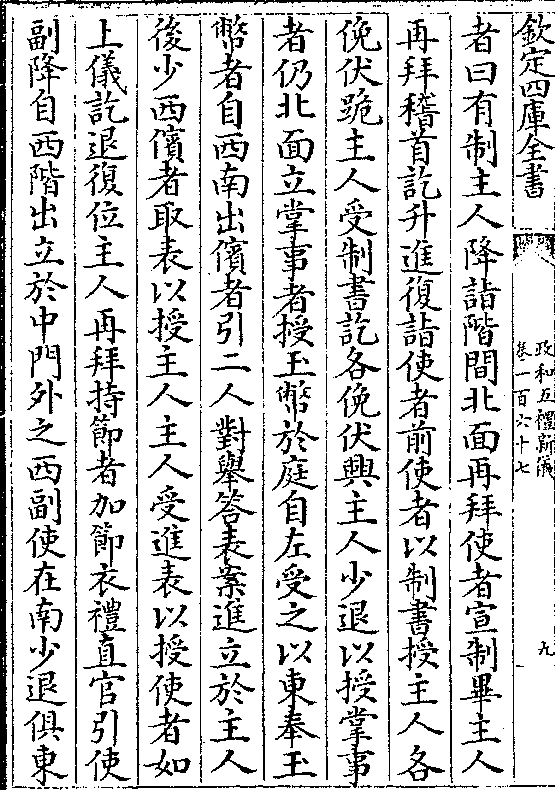 欽定四庫全書
政和五禮新儀
卷一百六十七
九
者曰有制主人降詣階間北面再拜使者宣制畢主人
再拜稽首訖升進復詣使者前使者以制書授主人各
俛伏跪主人受制書訖各俛伏興主人少退以授掌事
者仍北面立掌事者授玉幣於庭自左受之以東奉玉
幣者自西南出儐者引二人對舉答表案進立於主人
後少西儐者取表以授主人主人受進表以授使者如
上儀訖退復位主人再拜持節者加節衣禮直官引使
副降自西階出立於中門外之西副使在南少退俱東